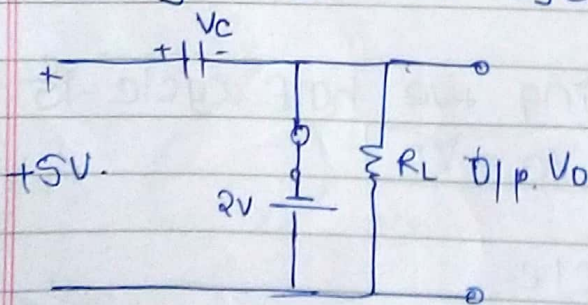 Vc
+ -
+
+5V.
2V
RL
O/p. Vo